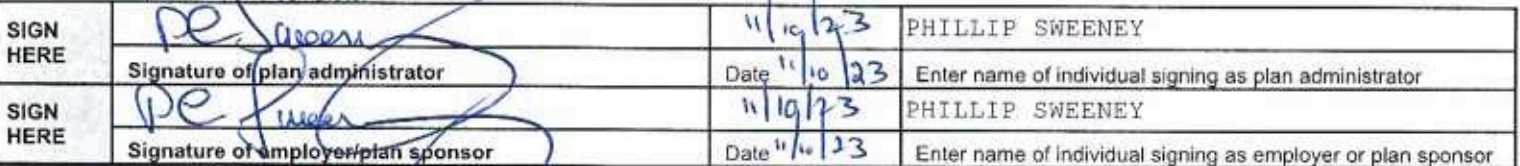 SIGN HERE
PHILLIP SWEENEY
Signature of plan administrator Date 11/10/23 Enter name of individual signing as plan administrator
SIGN HERE
PHILLIP SWEENEY
Signature of employer/plan sponsor Date 11/10/23 Enter name of individual signing as employer or plan sponsor